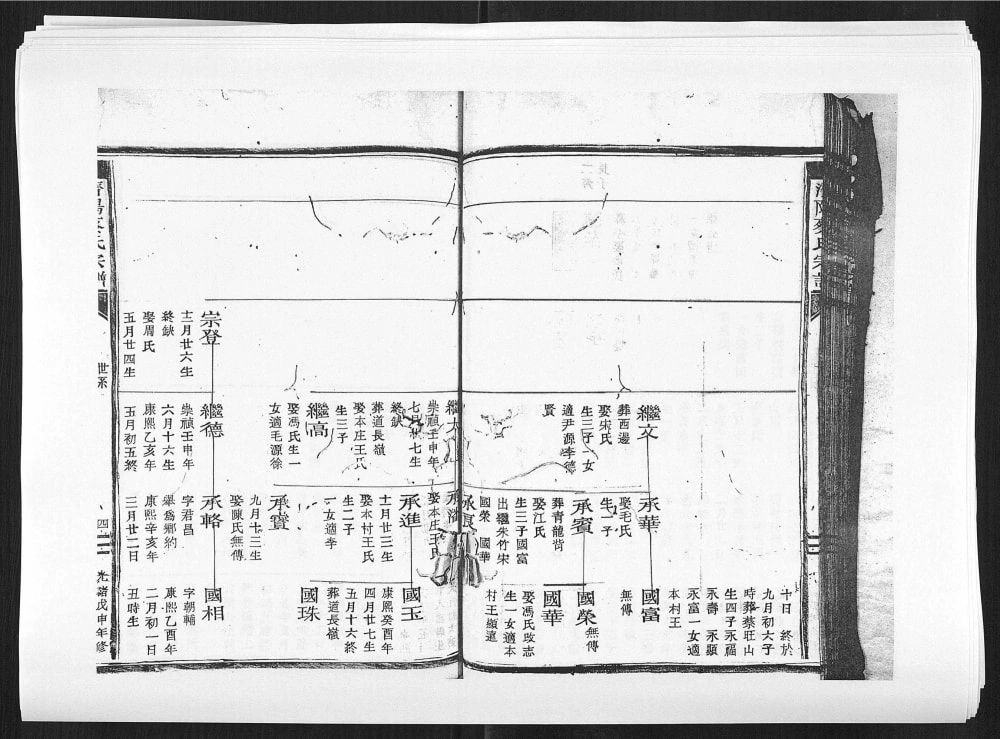 十日　終於
九月初六子
時葬蔡旺山
生四子永福
永壽　永顯
永富一女適
本村王
繼文
葬西邊
娶宋氏
生三子一女
適尹源李德
賢
承華
娶毛氏
生一子
國富
無傳
承賓
葬青龍背
娶江氏
生三子國富
出繼朱竹宋
國榮　國華
國榮
無傳
國華
娶馮氏改志
生一女適本
村王顯遠
崇禎壬申年
七月廿七生
終缺
葬道長嶺
娶本庄王氏
生三子
娶本庄王氏
承進
十一月廿三生
娶本村王氏
生二子
一女適李
國玉
康熙癸酉年
四月廿七生
五月十六終
葬道長嶺
國珠
繼高
娶馮氏生一
女適毛源徐
承寶
九月十三生
娶陳氏無傳
宗登
十二月廿六生
終缺
娶周氏
五月廿四生
繼德
崇禎壬申年
六月十六生
康熙乙亥年
五月初五終
承輅
字君昌
舉為鄉約
康熙辛亥年
三月廿二日
國相
字朝輔
康熙乙酉年
二月初一日
丑時生
世系
光緒戊申年修